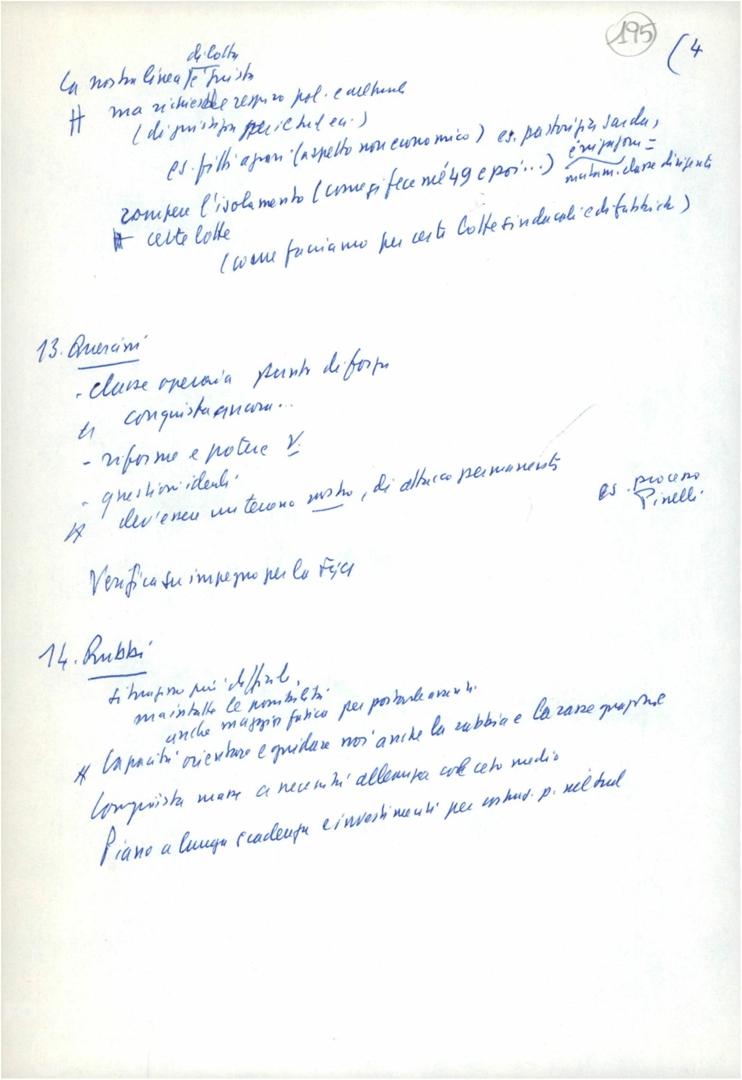 195
(4
di lotta
La nostra linea è giusta
ma richiede respiro pol. e culturale
es. fitti agrari (aspetto non economico) es. pastorizia sarda,
emigrazione =
rompere l'isolamento (come si fece nel '49 e poi...) classe dirigente
certe lotte
(come facciamo per certe lotte sindacali e di fabbrica)
13. Quercini
- classe operaia punto di forza
conquista ancora...
- riforme e potere V
- questioni ideali
dev'essere un terreno nostro, di attacco permanente
es. processo
Pinelli
Verifica su impegno per la Fgci
14. Rubbi
situazione più difficile,
ma intatte le possibilità
anche maggior fatica per portarle avanti.
Capacità orientare e guidare noi anche la rabbia e la rassegnazione
Conquista masse a necessità alleanza col ceto medio
Piano a lunga scadenza e investimenti per costruz. p. nel sud